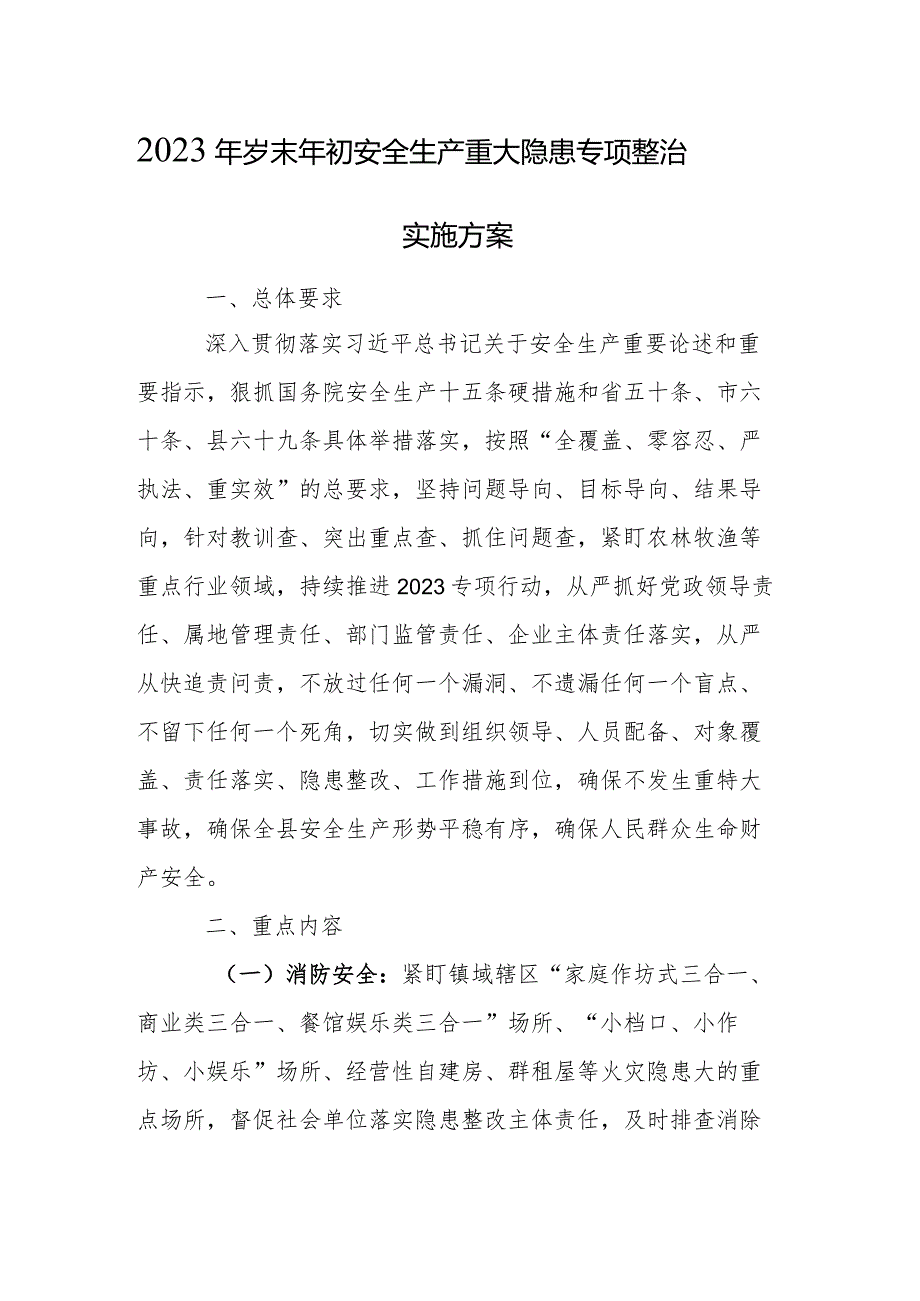 2023年岁末年初安全生产重大隐患专项整治
实施方案
一、总体要求
深入贯彻落实习近平总书记关于安全生产重要论述和重
要指示，狠抓国务院安全生产十五条硬措施和省五十条、市六
十条、县六十九条具体举措落实，按照“全覆盖、零容忍、严
执法、重实效”的总要求，坚持问题导向、目标导向、结果导
向，针对教训查、突出重点查、抓住问题查，紧盯农林牧渔等
重点行业领域，持续推进2023专项行动，从严抓好党政领导责
任、属地管理责任、部门监管责任、企业主体责任落实，从严
从快追责问责，不放过任何一个漏洞、不遗漏任何一个盲点、
不留下任何一个死角，切实做到组织领导、人员配备、对象覆
盖、责任落实、隐患整改、工作措施到位，确保不发生重特大
事故，确保全县安全生产形势平稳有序，确保人民群众生命财
产安全。
二、重点内容
（一）消防安全：紧盯镇域辖区“家庭作坊式三合一、
商业类三合一、餐馆娱乐类三合一”场所、“小档口、小作
坊、小娱乐”场所、经营性自建房、群租屋等火灾隐患大的重
点场所，督促社会单位落实隐患整改主体责任，及时排查消除